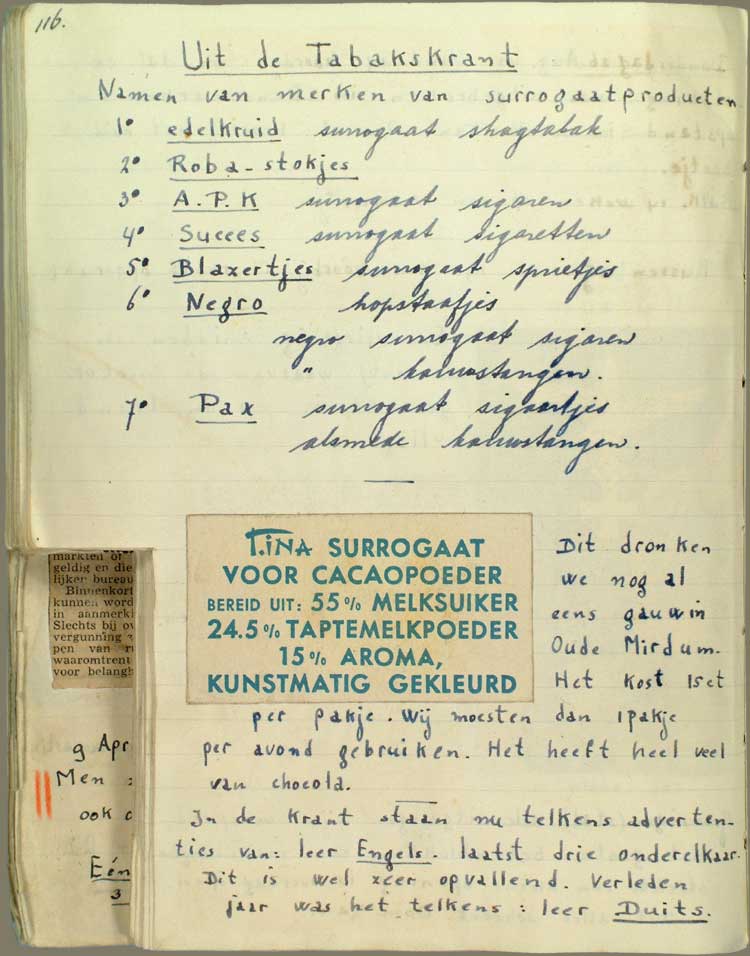 116.
Uit de Tabakskrant
Namen van merken van surrogaatproducten
1° edelkruid surrogaat shagtabak
2° Roba-stokjes
3° A.P.K surrogaat sigaren
4° Succes surrogaat sigaretten
5° Blazertjes surrogaat sprietjes
6° Negro hopstaafjes
negro surrogaat sigaren
" kauwstangen.
7° Pax surrogaat sigaartjes
alsmede kauwstangen.
TINA SURROGAAT
VOOR CACAOPOEDER
BEREID UIT: 55% MELKSUIKER
24.5% TAPTEMELKPOEDER
15% AROMA,
KUNSTMATIG GEKLEURD
Dit dronken
we nog al
eens gauw in
Oude Mirdum.
Het kost 15ct
per pakje. Wij moesten dan 1 pakje
per avond gebruiken. Het heeft heel veel
van chocola.
In de krant staan nu telkens adverten-
ties van: leer Engels. laatst drie onder elkaar.
Dit is wel zeer opvallend. Verleden
jaar was het telkens: leer Duits.
markten of
geldig en die
lijken bureau
Binnenkort
kunnen word
in aanmerki
Slechts bij ov
vergunning
pen van
waaromtrent
voor belangh
9 Apr
Men
ook
Eén
3